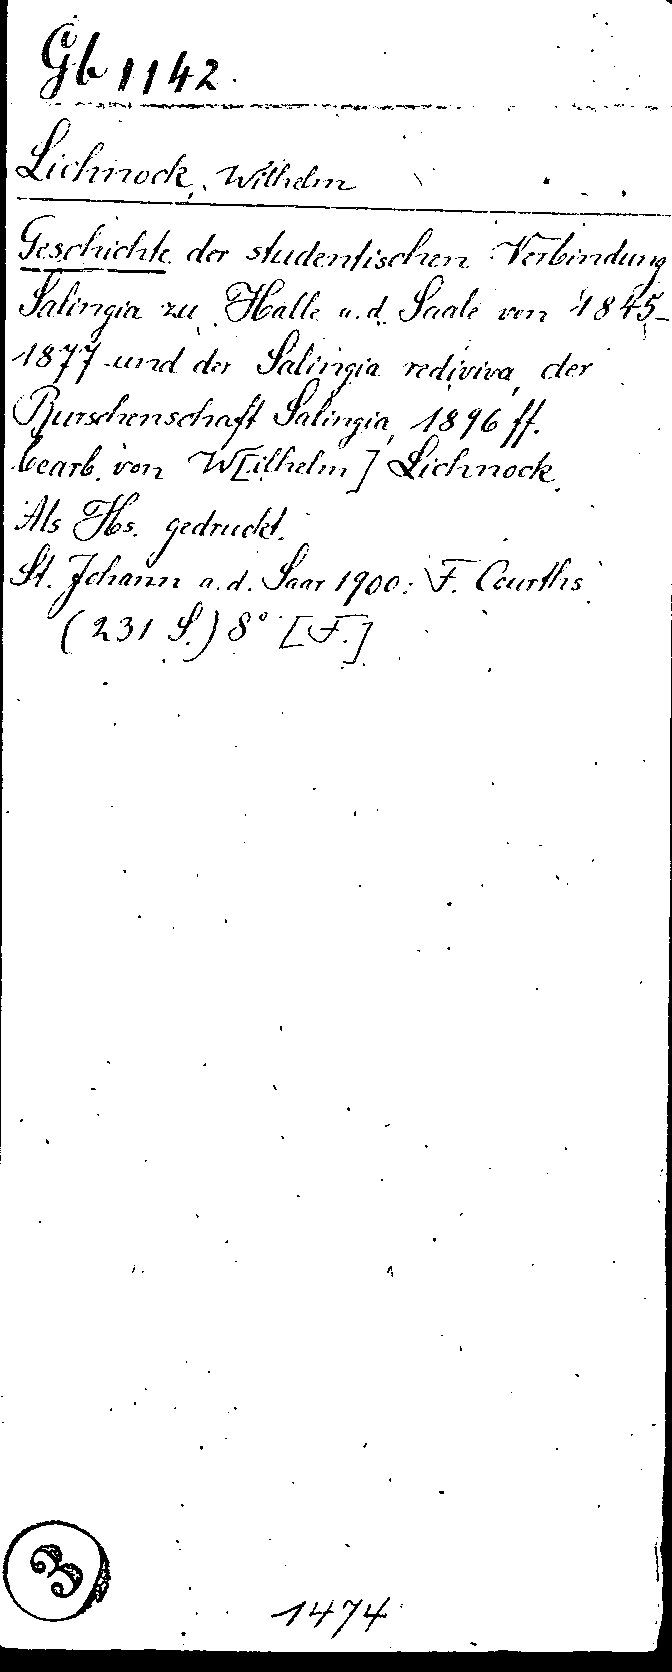 Gb 1142.
Lichnock, Wilhelm
Geschichte der studentischen Verbindung
Salingia zu Halle a.d. Saale von 1845-
1877 und der Salingia rediviva, der
Burschenschaft Salingia, 1896 ff.
bearb. von W[ilhelm] Lichnock.
Als Hs. gedruckt.
St. Johann a.d. Saar 1900: F. Courths.
(231 S.) 8° [F.]
3
1474